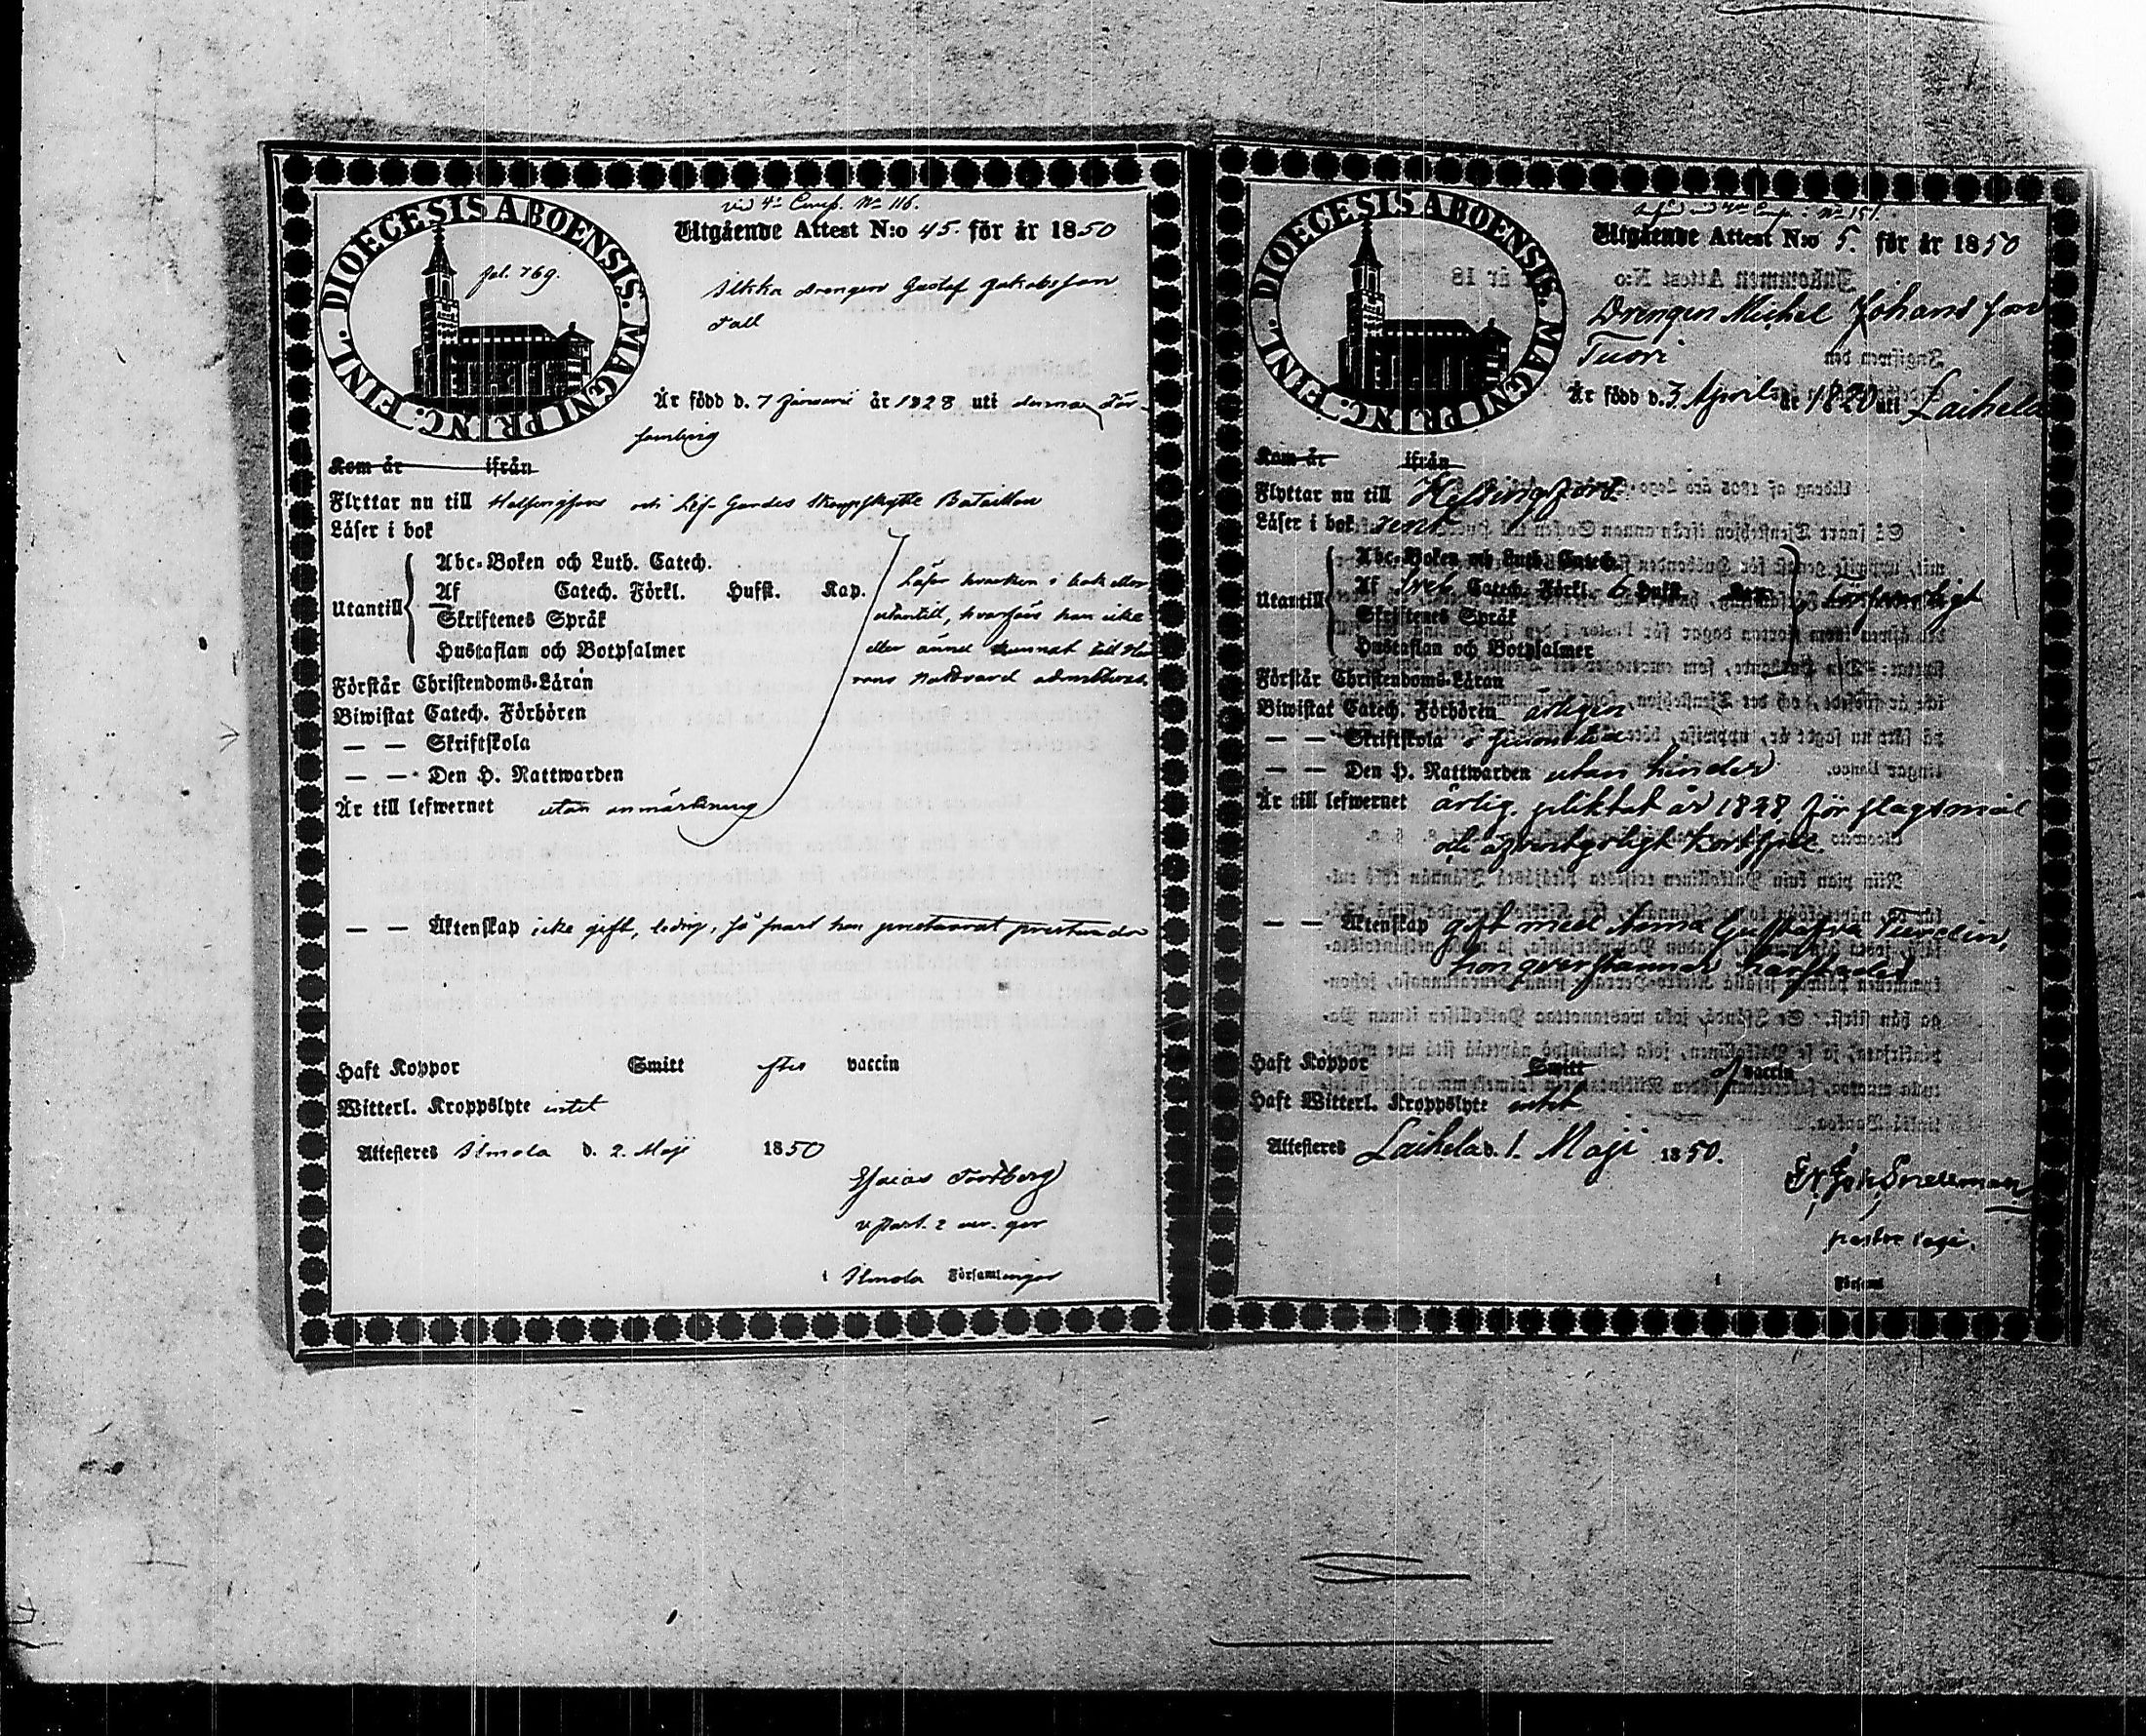 vid 4de Comp. No 116.
DIOECESIS ABOENSIS. MAGNI PRINC. FINL.
fol. 769.
Utgående Attest N:o 45. för år 1850
Ilkka drengen Gustaf Jakobsson
Tall
Är född d. 7 Januarii år 1828 uti denna För-
samling
Kom år ifrån
Flyttar nu till Helsingfors och Lif-Gardes Skarpskytte Bataillon
Läser i bok
Utantill
Abc-Boken och Luth. Catech.
Af Catech. Förkl. Hufst. Kap.
Skriftenes Språk
Hustaflan och Botpsalmer
Läser hvarken i bok eller
utantill, hvarföre han icke
eller ännu kunnat till Her
rans Nattvard admitteras.
Förstår Christendoms-Läran
Biwistat Catech. Förhören
— — Skriftskola
— — Den H. Nattwarden
Är till lefwernet utan anmärkning
— — Äktenskap icke gift, ledig, så snart han praesterat praestanda
Haft Koppor Smitt vaccin
Witterl. Kroppslyte intet
Attesteras Ilmola d. 2 Maji 1850
Esaias
v past.
i Ilmola Församlingar
vid 4de Comp. No 151.
DIOECESIS ABOENSIS. MAGNI PRINC. FINL.
Utgående Attest N:o 5. för år 1850
Drengen Michel Johansson
Tuori
Är född d. 3 Aprilis år 1820 uti Laihela
Kom år ifrån
Flyttar nu till Helsingfors
Läser i bok rent
Utantill
Abc-Boken och Luth. Catech.
Af Sveb. Catech. Förkl. 6 Hufst. Kap.
Skriftenes Språk
Hustaflan och Botpsalmer
försvarligt
Förstår Christendoms-Läran
Biwistat Catech. Förhören årligen
— — Skriftskola
— — Den H. Nattwarden utan hinder
Är till lefwernet ärlig. pliktat år 1848 för slagsmål
och
— — Äktenskap gift med Anna Gustafva Turdin,
hon qvarstannar
Haft Koppor Smitt vaccin
Haft Witterl. Kroppslyte intet
Attesteras Laihela d. 1. Maji 1850.
Snellman
pastor
i Församl